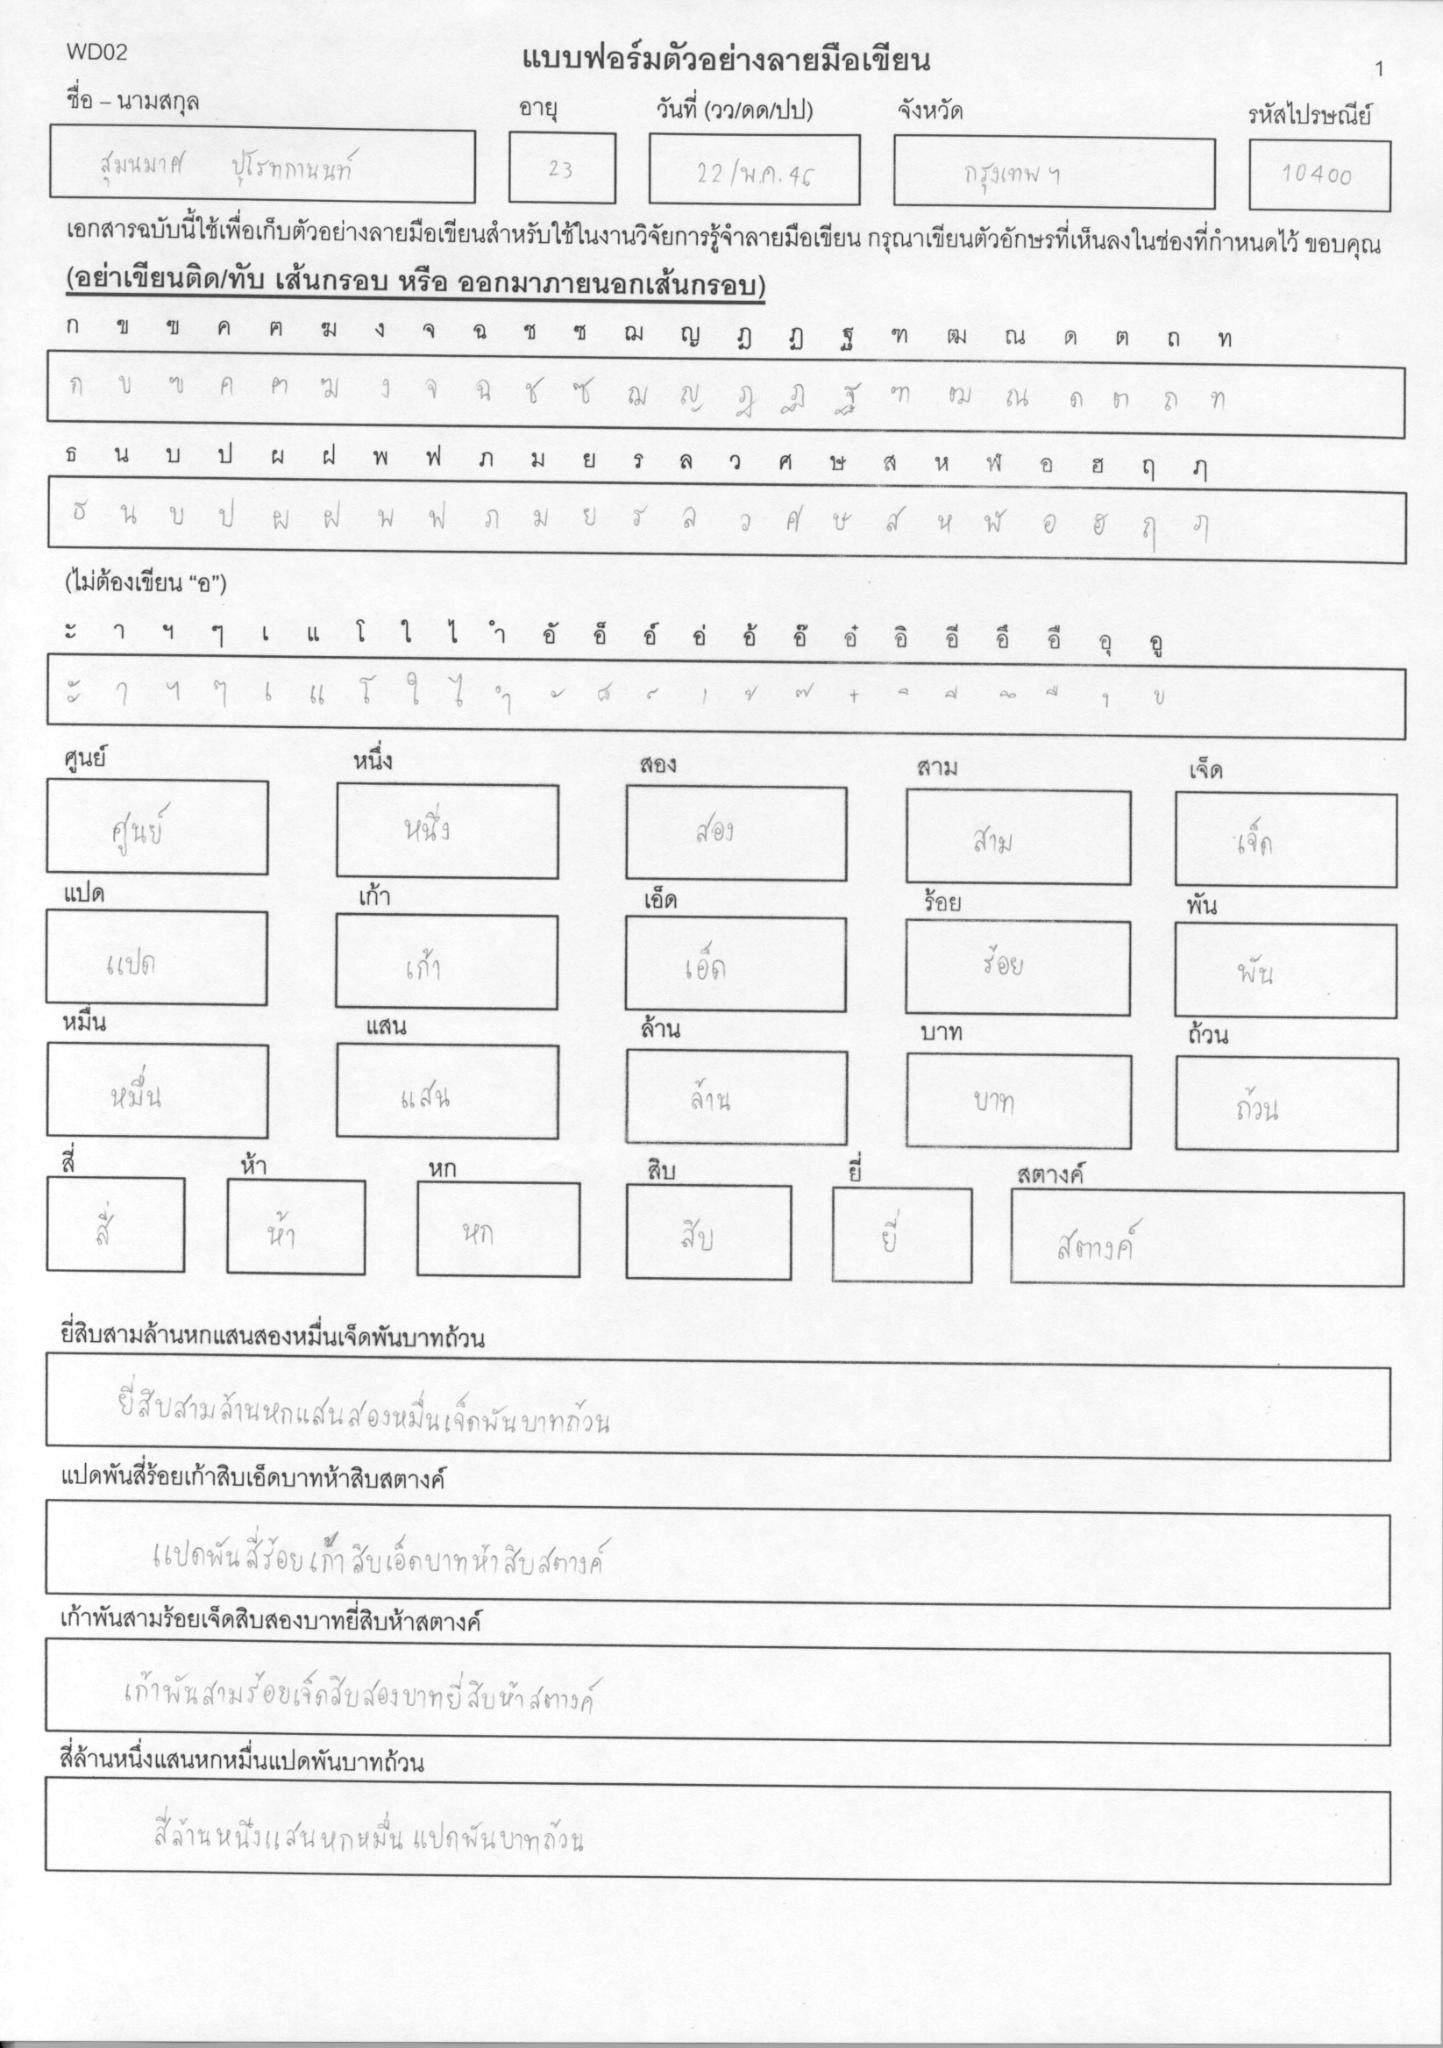 WD02
แบบฟอร์มตัวอย่างลายมือเขียน
1
ชื่อ – นามสกุล อายุ วันที่ (วว/ดด/ปป) จังหวัด รหัสไปรษณีย์
สุมนมาศ ปุโรทกานนท์ 23 22/พ.ค. 46 กรุงเทพฯ 10400
เอกสารฉบับนี้ใช้เพื่อเก็บตัวอย่างลายมือเขียนสำหรับใช้ในงานวิจัยการรู้จำลายมือเขียน กรุณาเขียนตัวอักษรที่เห็นลงในช่องที่กำหนดไว้ ขอบคุณ
(อย่าเขียนติด/ทับ เส้นกรอบ หรือ ออกมาภายนอกเส้นกรอบ)
ก ข ฃ ค ฅ ฆ ง จ ฉ ช ซ ฌ ญ ฎ ฏ ฐ ฑ ฒ ณ ด ต ถ ท
ก ข ฃ ค ฅ ฆ ง จ ฉ ช ซ ฌ ญ ฎ ฏ ฐ ฑ ฒ ณ ด ต ถ ท
ธ น บ ป ผ ฝ พ ฟ ภ ม ย ร ล ว ศ ษ ส ห ฬ อ ฮ ฤ ฦ
ธ น บ ป ผ ฝ พ ฟ ภ ม ย ร ล ว ศ ษ ส ห ฬ อ ฮ ฤ ฦ
(ไม่ต้องเขียน “อ”)
ะ า ฯ ๆ เ แ โ ใ ไ ำ อั อ็ อ์ อ่ อ้ อ๊ อ๋ อิ อี อึ อื อุ อู
ะ า ฯ ๆ เ แ โ ใ ไ ำ ั ็ ์ ่ ้ ๊ ๋ ิ ี ึ ื ุ ู
ศูนย์ หนึ่ง สอง สาม เจ็ด
ศูนย์ หนึ่ง สอง สาม เจ็ด
แปด เก้า เอ็ด ร้อย พัน
แปด เก้า เอ็ด ร้อย พัน
หมื่น แสน ล้าน บาท ถ้วน
หมื่น แสน ล้าน บาท ถ้วน
สี่ ห้า หก สิบ ยี่ สตางค์
สี่ ห้า หก สิบ ยี่ สตางค์
ยี่สิบสามล้านหกแสนสองหมื่นเจ็ดพันบาทถ้วน
ยี่สิบสามล้านหกแสนสองหมื่นเจ็ดพันบาทถ้วน
แปดพันสี่ร้อยเก้าสิบเอ็ดบาทห้าสิบสตางค์
แปดพันสี่ร้อยเก้าสิบเอ็ดบาทห้าสิบสตางค์
เก้าพันสามร้อยเจ็ดสิบสองบาทยี่สิบห้าสตางค์
เก้าพันสามร้อยเจ็ดสิบสองบาทยี่สิบห้าสตางค์
สี่ล้านหนึ่งแสนหกหมื่นแปดพันบาทถ้วน
สี่ล้านหนึ่งแสนหกหมื่นแปดพันบาทถ้วน